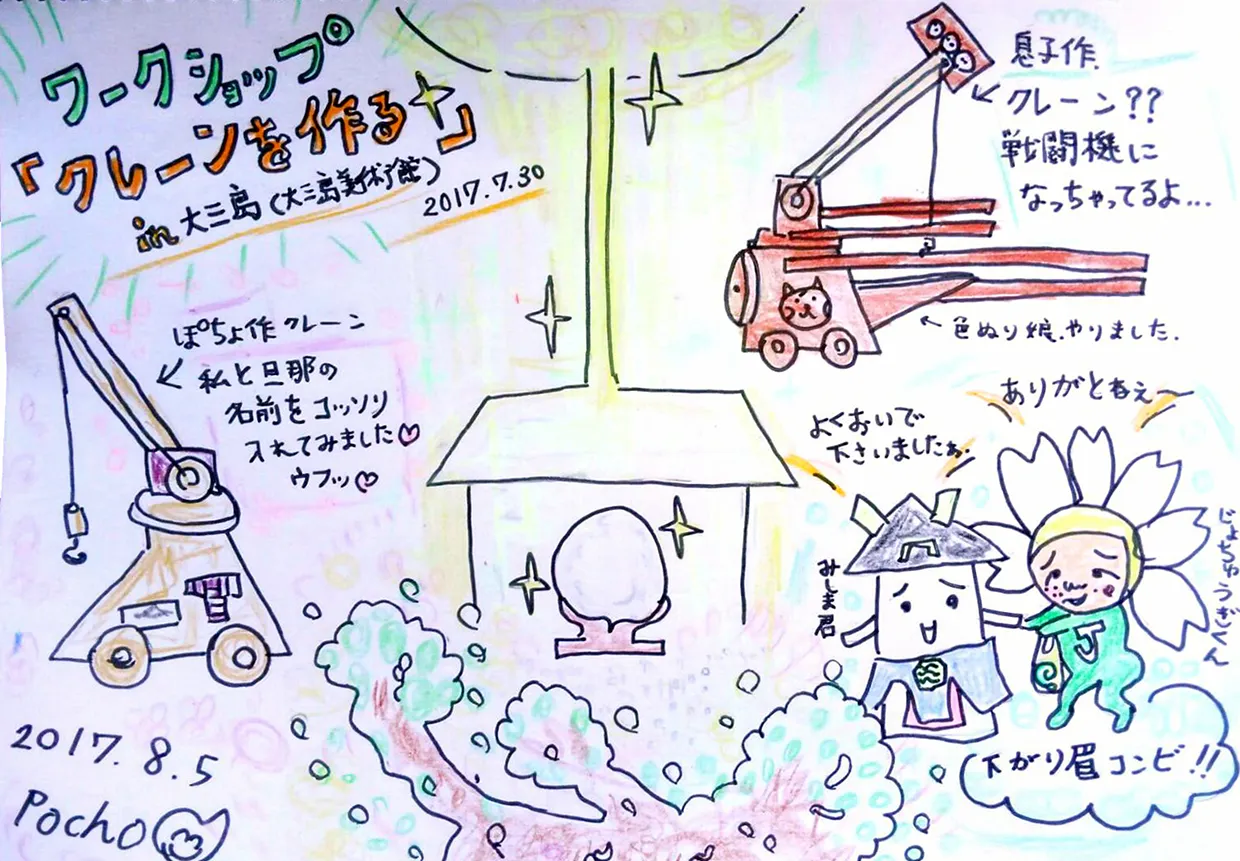 ワークショップ
「クレーンを作る」
in 大三島(大三島美術館)
2017.7.30
息子作.
クレーン??
戦闘機に
なっちゃってるよ...
色ぬり娘.やりました.
ぽちょ作クレーン
私と旦那の
名前をコッソリ
入れてみました♡
ウフッ♡
ありがとねぇ〜
よくおいで
下さいましたぁ.
みしま君
じょちゅうぎくん
J
下がり眉コンビ!!
2017.8.5
Pocho